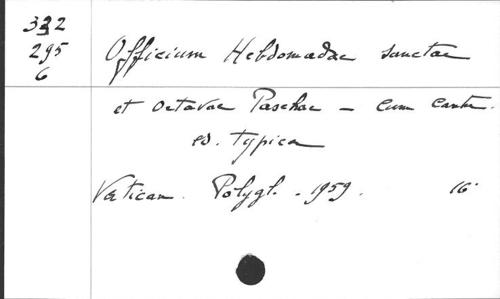 332
295
6
Officium Hebdomadae sanctae
et octavae Paschae – cum cantu.
ed. typica
Vatican. Polygl. - 1959. 16°